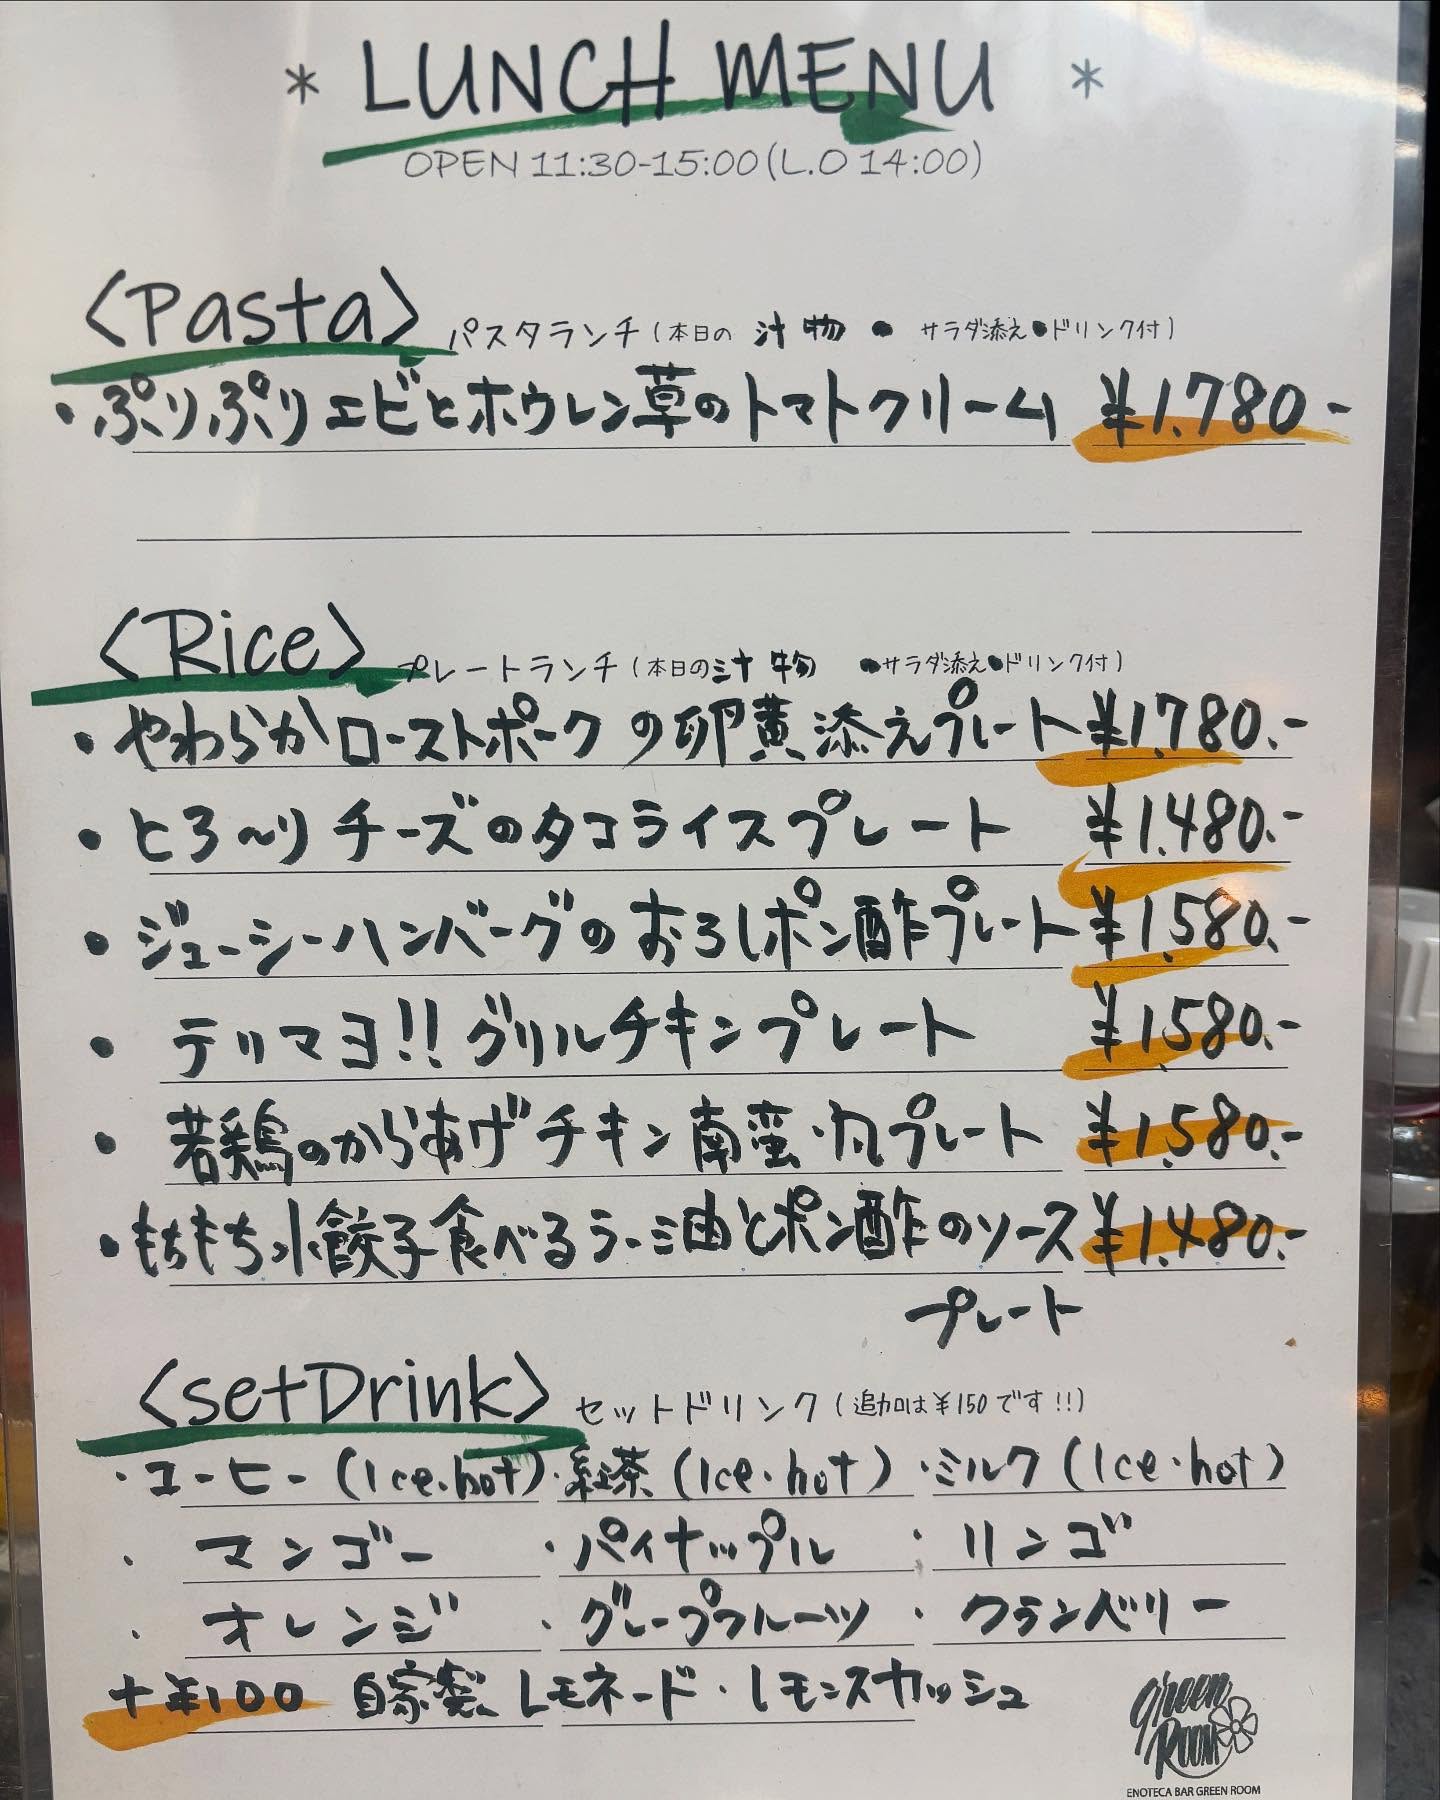 * LUNCH MENU *
OPEN 11:30-15:00(L.O 14:00)
<Pasta> パスタランチ(本日の 汁物 ● サラダ添え●ドリンク付)
・ぷりぷりエビとホウレン草のトマトクリーム ¥1.780-
<Rice> プレートランチ(本日の汁物 ●サラダ添え●ドリンク付)
・やわらかローストポークの卵黄添えプレート ¥1.780.-
・とろ〜りチーズのタコライスプレート ¥1.480.-
・ジューシーハンバーグのおろしポン酢プレート ¥1.580.-
・テリマヨ!!グリルチキンプレート ¥1.580.-
・若鶏のからあげチキン南蛮風プレート ¥1.580.-
・もちもち小餃子食べるラー油とポン酢のソース ¥1.480.-
プレート
<setDrink> セットドリンク(追加は¥150です!!)
・コーヒー(Ice・hot)・紅茶(Ice・hot)・ミルク(Ice・hot)
・マンゴー ・パイナップル ・リンゴ
・オレンジ ・グレープフルーツ ・クランベリー
+¥100 自家製レモネード・レモンスカッシュ
green
ROOM
ENOTECA BAR GREEN ROOM